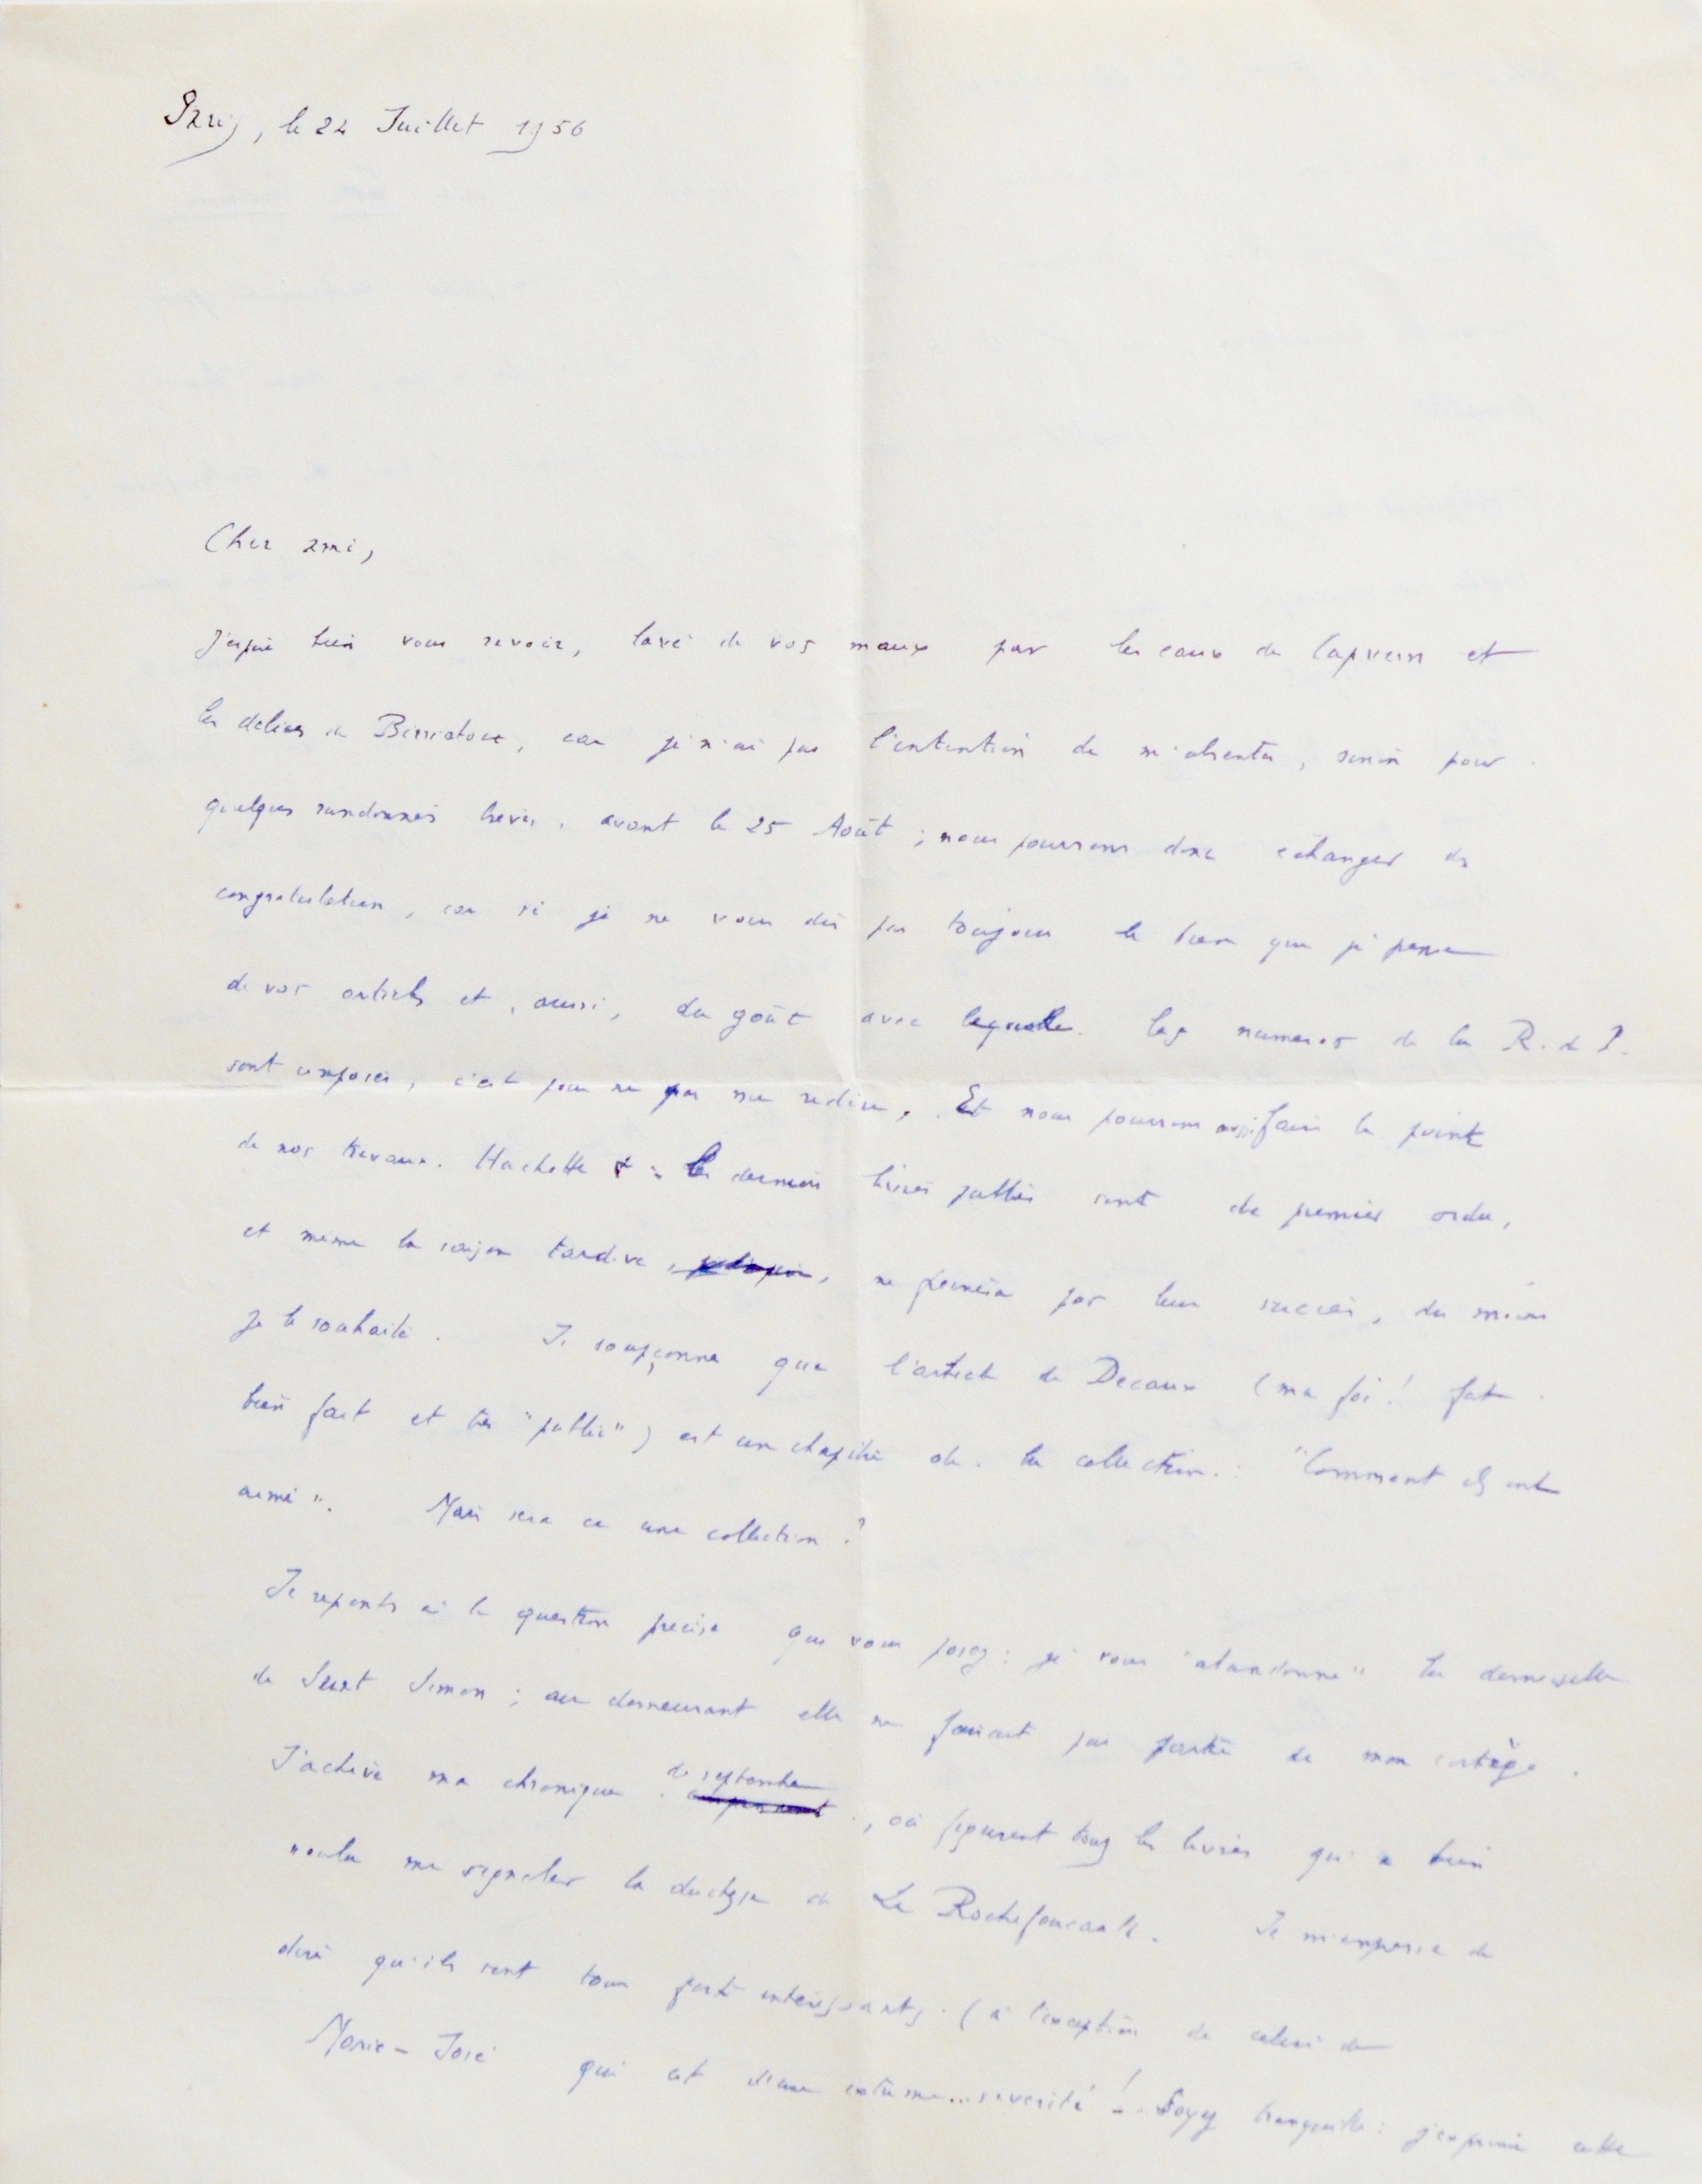 Paris, le 24 Juillet 1956
Cher ami,
J'espère bien vous revoir, lavé de vos maux par les eaux de Capvern et
les délices de Birriatou, car je n'ai pas l'intention de m'absenter, sinon pour
quelques randonnées brèves, avant le 25 Août ; nous pourrons donc échanger des
congratulations, car si je ne vous dis pas toujours le bien que je pense
de vos articles et, aussi, du goût avec lequel les numéros de la R. de P.
sont composés, c'est pour ne pas me redire. Et nous pourrons aussi faire le point
de nos travaux. Hachette : les derniers livres publiés sont de premier ordre,
et même la saison tardive, ne freinera pas leur succès, du moins
je le souhaite. Je soupçonne que l'article de Decaux (ma foi ! fort
bien fait et très "public") est un chapitre de la collection : "Comment ils ont
aimé". Mais sera ce une collection ?
Je réponds à la question précise que vous posez : je vous "abandonne" la demoiselle
de Saint Simon ; au demeurant elle ne faisait pas partie de mon cortège.
J'achève ma chronique de septembre, où figurent tous les livres qu'a bien
voulu me signaler la duchesse de La Rochefoucauld. Je m'empresse de
dire qu'ils sont tous fort intéressants (à l'exception de celui de
Marie-José qui est d'une extrême... sévérité ! Soyez tranquille : j'exprime cette